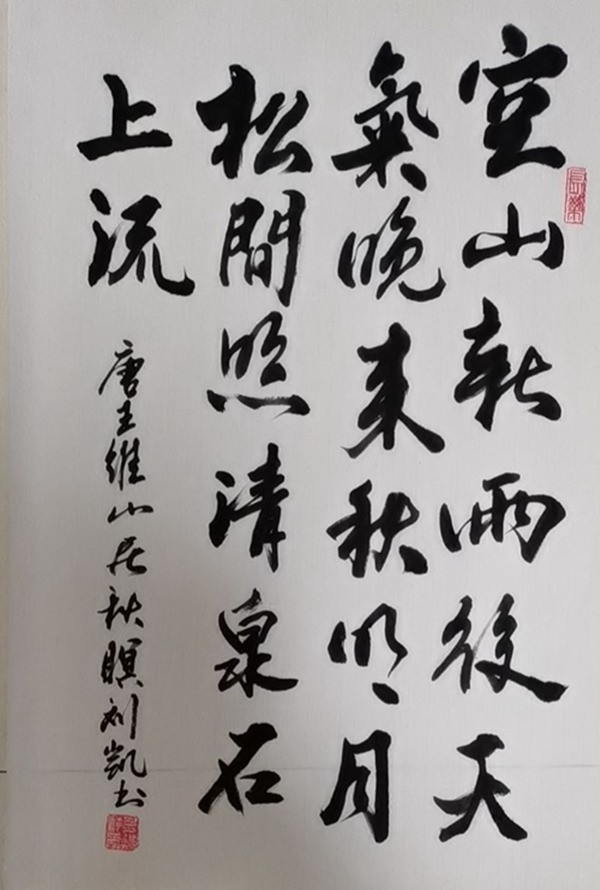 空山新雨後天
氣晚来秋明月
松間照清泉石
上流
唐王維山居秋暝刘凱书